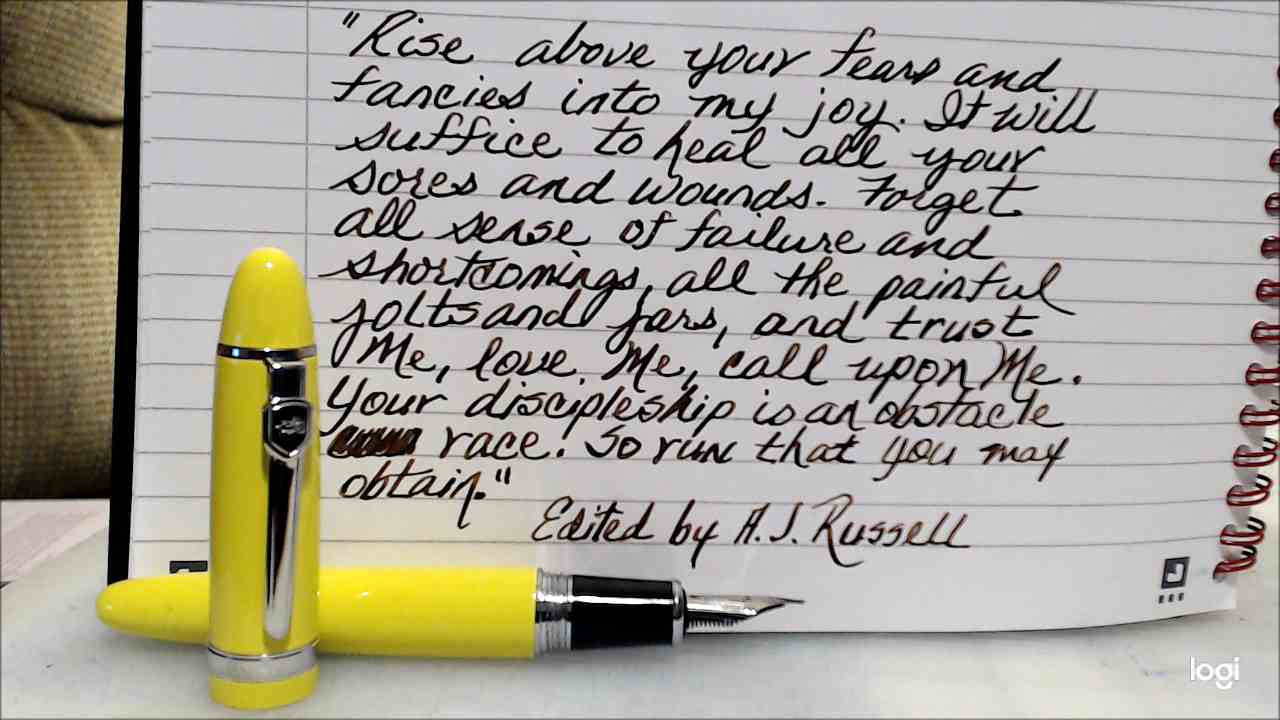 "Rise above your fears and
fancies into my joy. It will
suffice to heal all your
sores and wounds. Forget
all sense of failure and
shortcomings, all the painful
jolts and jars, and trust
Me, love Me, call upon Me.
Your discipleship is an obstacle
race. So run that you may
obtain."
Edited by A.J. Russell
logi